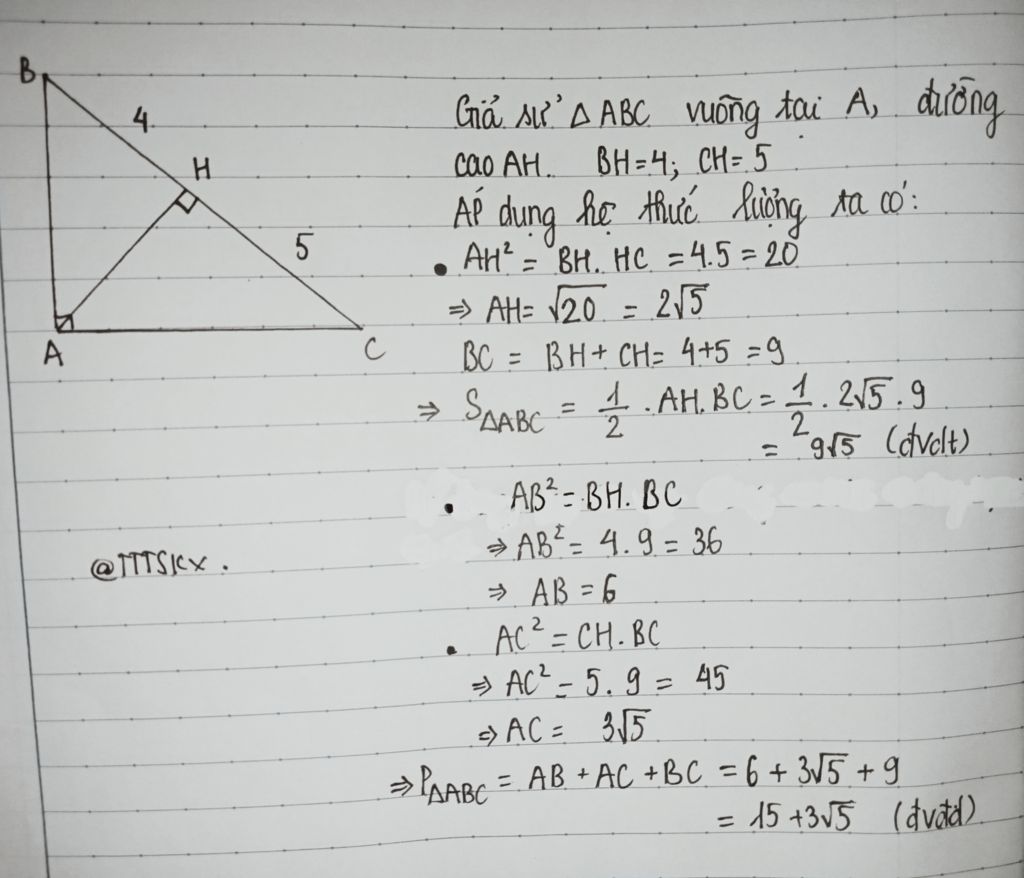 B
4
H
5
A
C
Giả sử ΔABC vuông tại A, đường
cao AH. BH=4; CH=5
Áp dụng hệ thức lượng ta có:
• AH² = BH. HC = 4.5 = 20
⇒ AH= √20 = 2√5
BC = BH + CH= 4+5 = 9
⇒ S_ΔABC = 1/2 . AH.BC = 1/2 . 2√5 . 9
= 9√5 (đvdt)
• AB² = BH. BC
⇒ AB² = 4. 9 = 36
⇒ AB = 6
@TTTSKX.
• AC² = CH. BC
⇒ AC² = 5. 9 = 45
⇒ AC = 3√5
⇒ P_ΔABC = AB + AC + BC = 6 + 3√5 + 9
= 15 + 3√5 (đvđd)